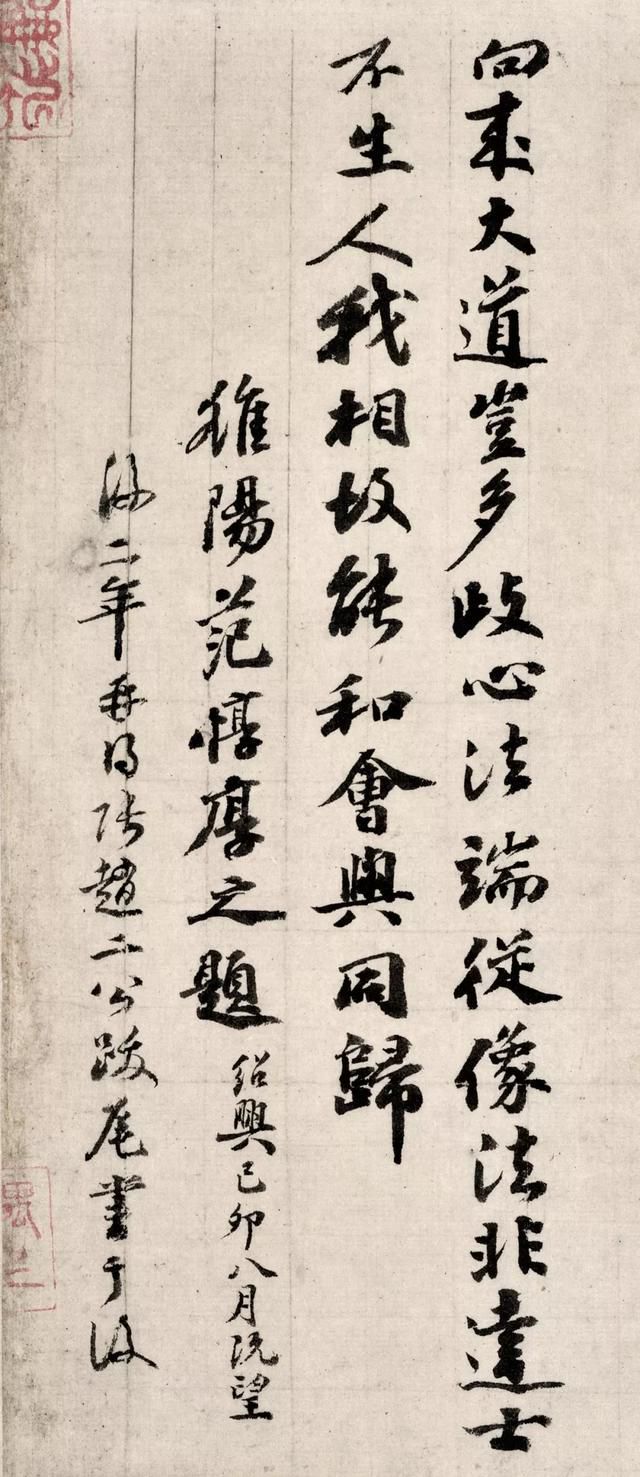 向來大道豈多歧心法端從像法非達士
不生人我相故能和會與同歸
雒陽范惇序之題
紹興己卯八月既望
後二年再得張趙二公跋尾書于後